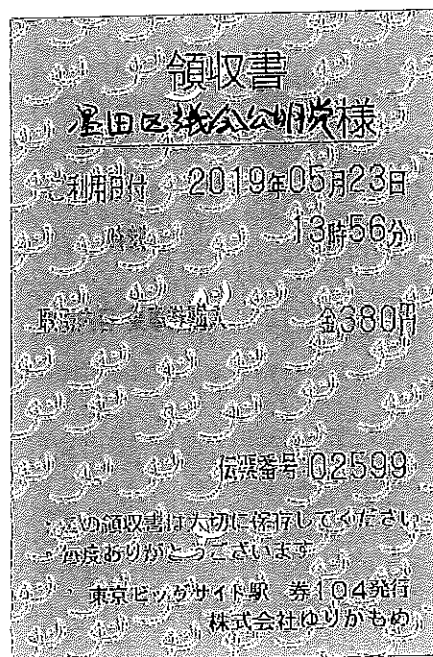 領収書
墨田区議会公明党様
ご利用日付 2019年05月23日
時刻 13時56分
取引内容 乗車券購入 金380円
伝票番号 02599
この領収書は大切に保存してください
毎度ありがとうございます
東京ビッグサイト駅 券104発行
株式会社ゆりかもめ